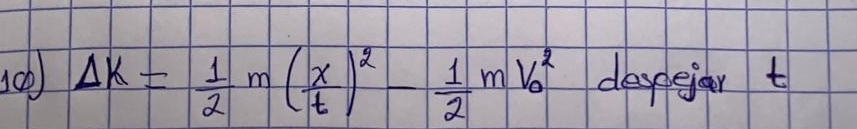 10) ΔK = 1/2 m (x/t)² - 1/2 m V₀² despejar t